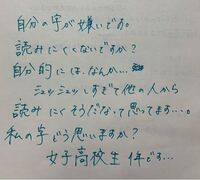 自分の字が嫌いです。
読みにくくないですか?
自分的には、なんか…
シュッシュッしすぎて他の人から
読みにくそうだなって思ってます…。
私の字どう思いますか?
女子高校生1年です…